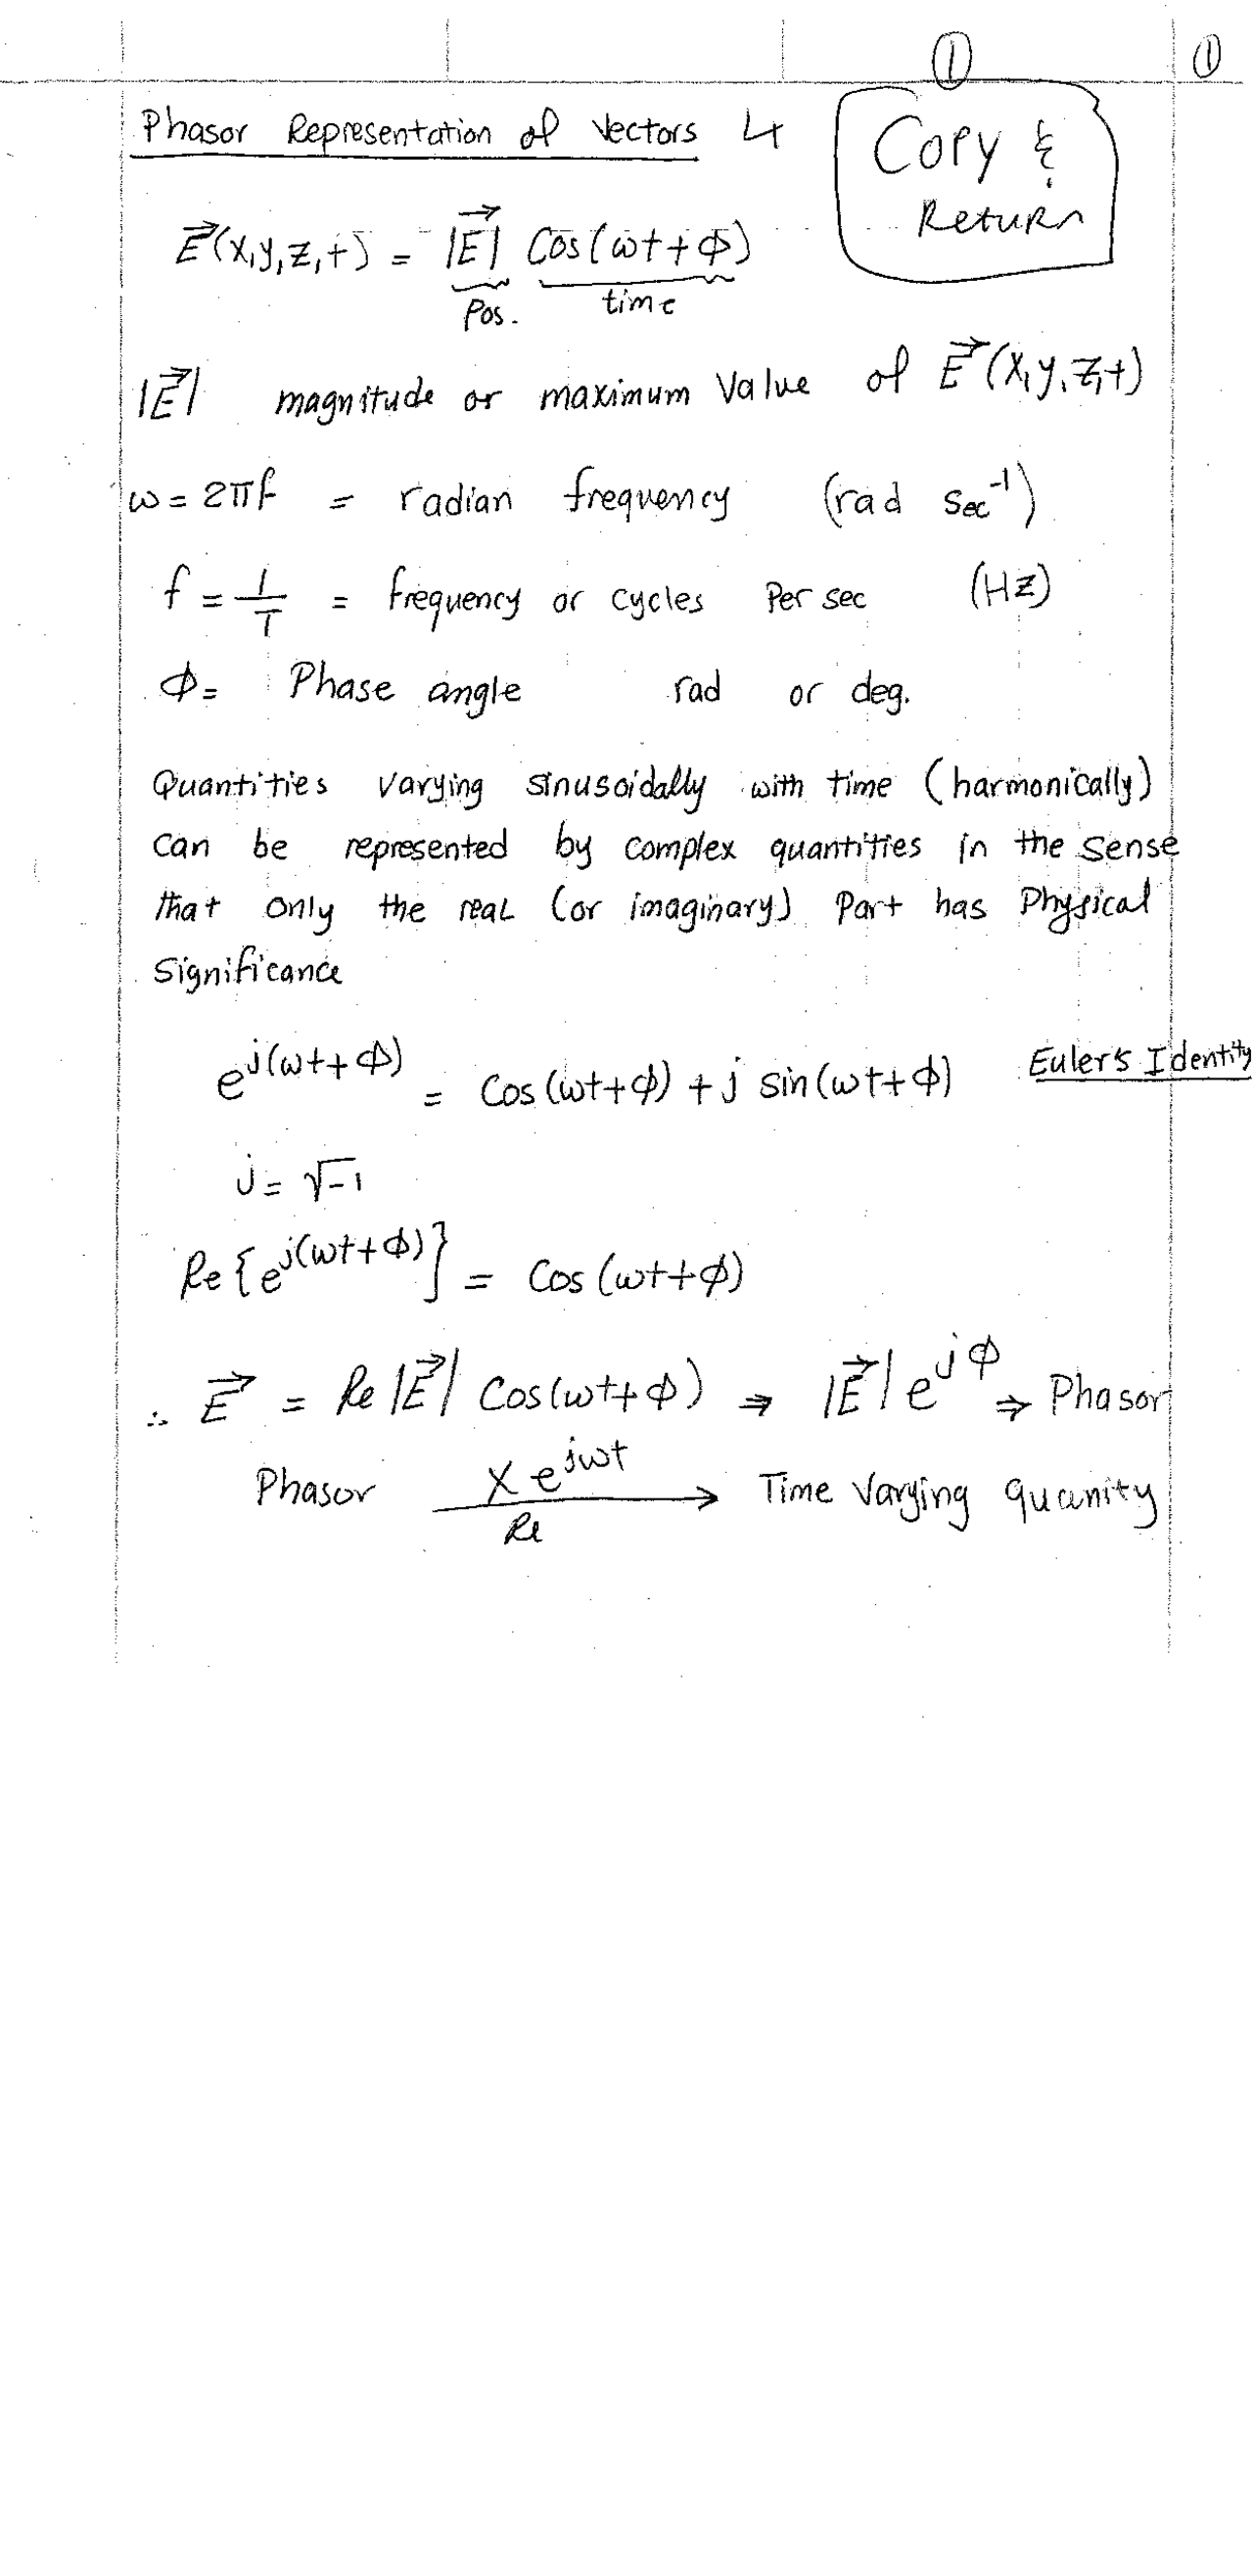 ① ①
Phasor Representation of Vectors 4
Copy &
Return
E⃗(x,y,z,t) = |E⃗| Cos(ωt+ϕ)
Pos. time
|E⃗| magnitude or maximum Value of E⃗(x,y,z,t)
ω = 2πf = radian frequency (rad sec⁻¹)
f = 1/T = frequency or cycles Per sec (Hz)
ϕ = Phase angle rad or deg.
Quantities varying sinusoidally with time (harmonically)
can be represented by complex quantities in the sense
that only the real (or imaginary) Part has Physical
Significance
e^j(ωt+ϕ) = Cos(ωt+ϕ) + j sin(ωt+ϕ) Euler's Identity
j = √-1
Re{e^j(ωt+ϕ)} = Cos(ωt+ϕ)
∴ E⃗ = Re|E⃗| Cos(ωt+ϕ) ⇒ |E⃗|e^jϕ ⇒ Phasor
Phasor X e^jωt → Time Varying quanity
Re